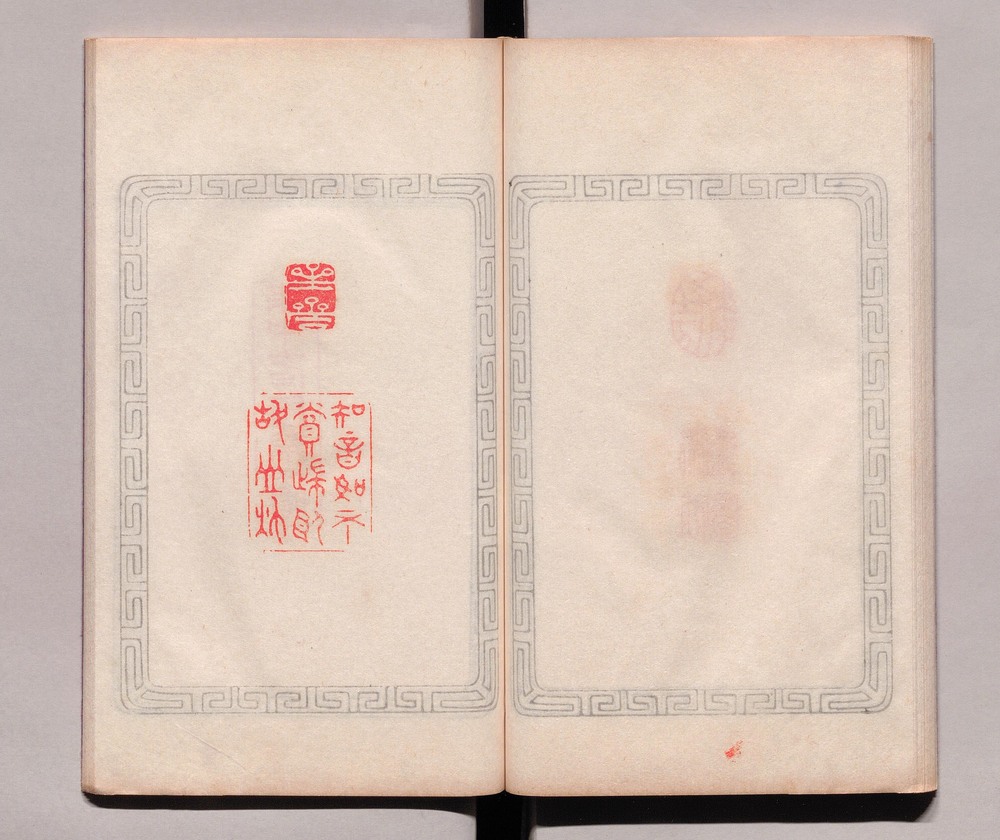 知音如不
賞歸臥
故山秋